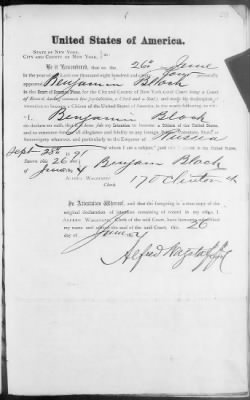 United States of America.
STATE OF NEW YORK,
CITY AND COUNTY OF NEW YORK,
Be it Remembered, that on the 26th June
in the year of our Lord one thousand eight hundred and
appeared Benjamin Block
in the Court of Common Pleas, for the City and County of New York, (said Court being a Court
of Record, having common law jurisdiction, a Clerk and a Seal), and made his declaration of
intention to become a Citizen of the United States of America, in the words following, to wit:
"I, Benjamin Block
do declare on oath, that it is bona fide my intention to become a Citizen of the United States,
and to renounce forever all allegiance and fidelity to any foreign Prince, Potentate, State or
Sovereignty whatever, and particularly to the Emperor of Russia
of whom I am a subject,
Sept 23d 91
Sworn this 26 day Benjam Block
of June 4 170 Clinton st
ALFRED WAGSTAFF
Clerk
In Attestation Whereof, and that the foregoing is a true copy of the
original declaration of intention remaining of record in my office, I,
ALFRED WAGSTAFF, Clerk of the said Court, have hereunto subscribed
my name and affixed the seal of the said Court, this 26
day of June
Alfred Wagstaff